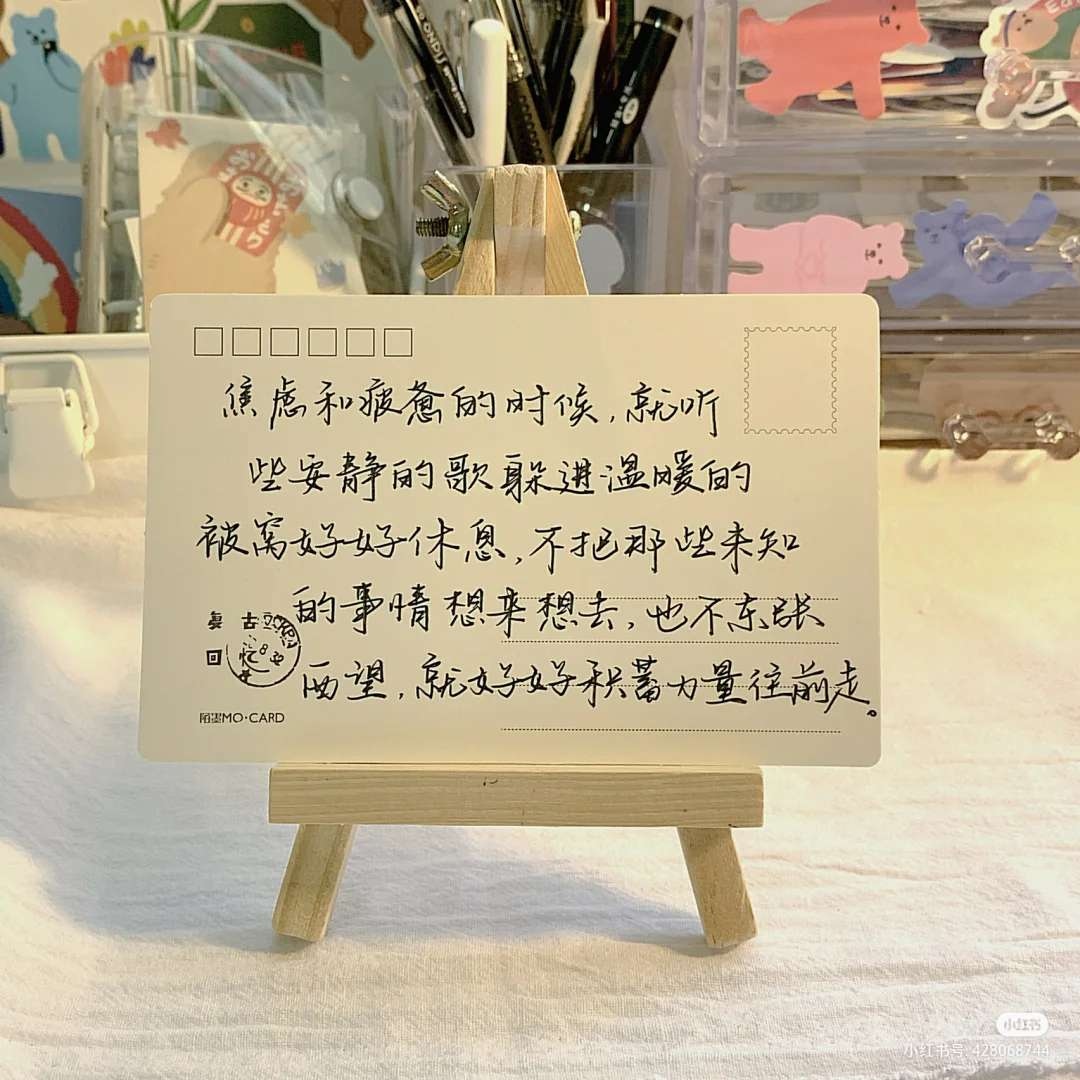 焦虑和疲惫的时候，就听
些安静的歌躲进温暖的
被窝好好休息，不把那些未知
的事情想来想去，也不东张
西望，就好好积蓄力量往前走。
陌墨MO·CARD
小红书
小红书号: 428068744